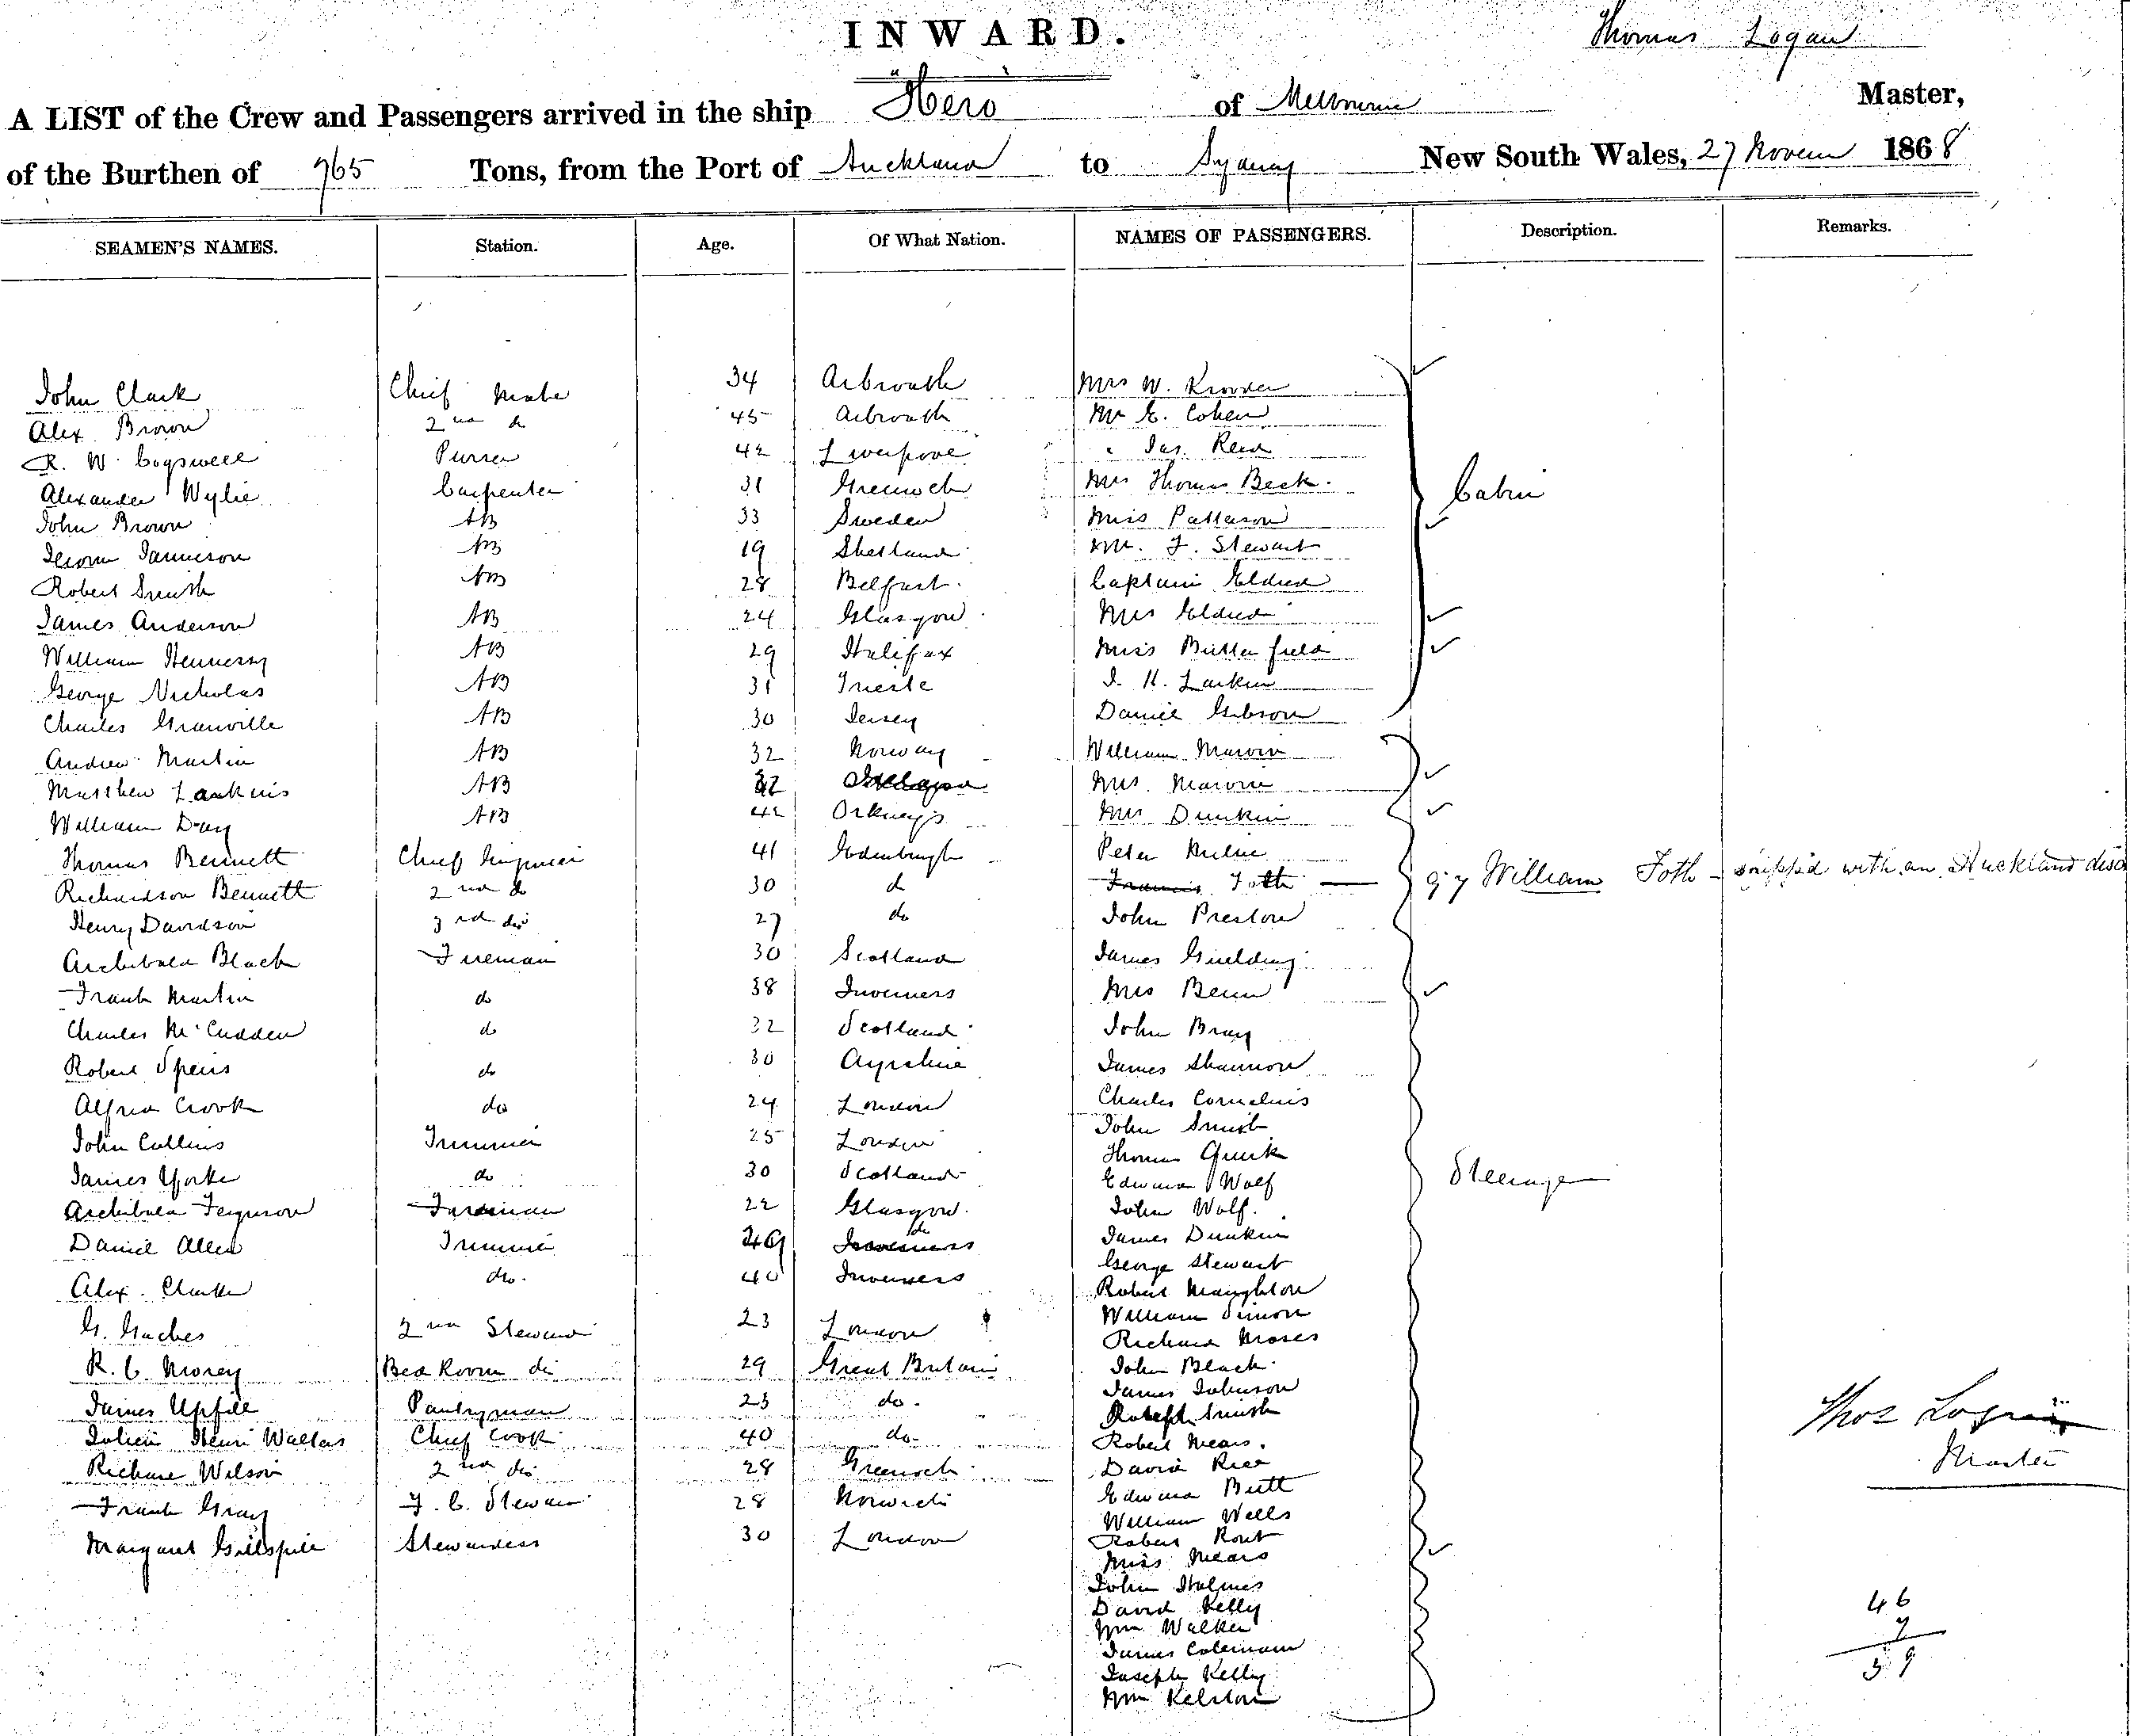 INWARD.
Thomas Logan
A LIST of the Crew and Passengers arrived in the ship Hero of Melbourne Master,
of the Burthen of 965 Tons, from the Port of Auckland to Sydney New South Wales, 27 Novem 1868
SEAMEN'S NAMES. Station. Age. Of What Nation. NAMES OF PASSENGERS. Description. Remarks.
John Clark Chief Mate 34 Arbroath Mrs W.
Alex. Brown 2nd do 45 Arbroath Mr E. Cohen
R. W. Cogswell Purser 42 Liverpool " Jas. Reid
Alexander Wylie Carpenter 31 Greenock Mrs Thomas Beck. Cabin
John Brown AB 33 Sweden Miss Patterson
Jamieson AB 19 Shetland Mr. J. Stewart
Robert Smith AB 28 Belfast. Captain Eldred
James Anderson AB 24 Glasgow Mrs Eldred
William Hennessy AB 29 Halifax Miss Butterfield
George Nicholas AB 31 Trieste J. H. Larkin
Charles Granville AB 30 Jersey Daniel Gibson
Andrew Martin AB 32 Norway William Marvin
Matthew Larkins AB Mrs. Marvin
William Day AB 42 Orkneys Mrs Dunkin
Thomas Bennett Chief Engineer 41 Edinburgh Peter Milne
Richardson Bennett 2nd do 30 do Francis Toth William Toth - shipped with an Auckland disc
Henry Davidson 3rd do 27 do John Preston
Archibald Black Fireman 30 Scotland James Guilding
Frank Martin do 38 Inverness Mrs Benn
Charles McCudden do 32 Scotland John Bray
Robert Speirs do 30 Ayrshire James Shannon
Alfred Crook do 24 London Charles Cornelius
John Collins Trimmer 25 London John Smith
James Yorke do 30 Scotland Thomas Quirk
Archibald Ferguson Fireman 22 Glasgow. Edward Wolf Steerage
John Wolf.
Daniel Allen Trimmer 49 Inverness do James Dunkin
Alex. Clarke do. 40 Inverness George Stewart
Robert Naughton
G. Gaches 2nd Steward 23 London William Simon
Richard Moses
R. C. Morey Bed Room do 29 Great Britain John Black
James Upfill Pantryman 23 do. James Johnson
Robert Smith
Julien Henri Walters Chief Cook 40 do Robert Mears.
Richard Wilson 2nd do 28 Greenock David Rice
Frank Gray F. C. Steward 28 Norwich Edward Butt
William Wells
Margaret Gillespie Stewardess 30 London Robert Rout
Miss Mears
John Holmes
David Kelly
Wm Walker
James Coleman
Joseph Kelly
Wm Kelston
Thos Logan
Master
46